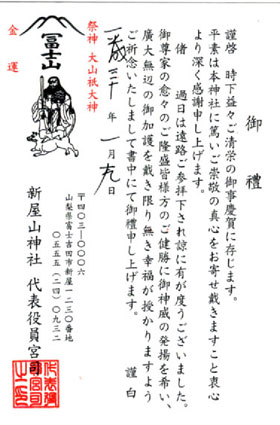 御禮
謹啓　時下益々ご清栄の御事慶賀に存じます。
平素は本神社に篤いご崇敬の真心をお寄せ戴きますこと衷心
より深く感謝申し上げます。
偖　過日は遠路ご参拝下され諒に有が度うございました。
御尊家の愈々のご隆盛皆様方のご健勝に御神威の発揚を希い、
廣大無辺の御加護を戴き限り無き幸福が授かりますよう
ご祈念いたしまして書中にて御禮申し上げます。
謹白
年一月九日
〒四〇三―〇〇〇六
山梨県富士吉田市新屋一二三〇番地
〇五五五（二四）〇九三二
新屋山神社　代表役員宮司
祭神　大山祇大神
冨士山
金運